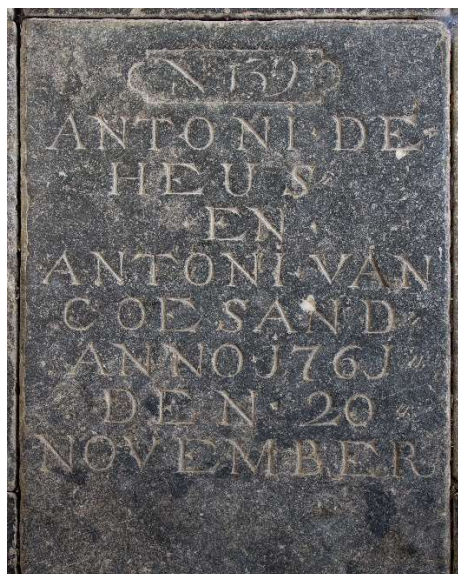 N 159
ANTONI·DE·
HEUS·
·EN·
ANTONI·VAN
COESAND·
ANNO·J76J·
DEN·20
NOVEMBER